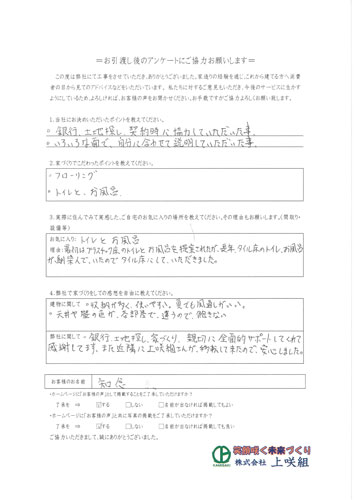 ＝お引渡し後のアンケートにご協力お願いします＝
この度は弊社にて工事をさせていただき、ありがとうございました。家造りの経験を通じ、これから建てる方へ消費
者の目から見てのアドバイスなどをいただいています。私たちに対するご意見もいただき、今後のサービスに生かす
ようにしているため、よろしければ、お客様の声をお聞かせください。お手数ですがご協力よろしくお願い致します。
1．当社にお決めいただいたポイントを教えてください。
○銀行、土地探し、契約時に協力していただいた事。
○いろいろな面で、自分に合わせて説明していただいた事。
2．家づくりでこだわったポイントを教えてください。
○フローリング
○トイレと、お風呂
3．実際に住んでみて実感した、ご自宅のお気に入りの場所を教えてください。その理由もお願いします。（間取り・
設備等）
お気に入り：トイレとお風呂
理由：最初はプラスチック店のトイレとお風呂を提案されたが、長年、タイル床のトイレ、お風呂
が馴染んで、いたのでタイル床にして、いただきました。
4．弊社で家づくりをしての感想を自由に教えてください。
建物に関して ○収納が多く、使いやすい。夏でも風通しがいい。
○天井や壁の色が、各部屋で、違うので、飽きない
弊社に関して ○銀行、土地探し、家づくり、親切に全面的サポートしてくれて
感謝してます、また近隣に上咲組さんが、頑張って来たので、安心しました。
お客様のお名前 知念
・ホームページに「お客様の声」として掲載することをご了承していただけますか？
了承を ⇒ ☑する □しない □名前が出なければ掲載してもよい
・ホームページに「お客様の声」と共に写真の掲載をどうかご了承していただけますか？
了承を ⇒ ☑する □しない □名前が出なければ掲載しても良い
ご協力いただきまして、誠にありがとうございました。
笑顔咲く未来づくり
株式会社 上咲組